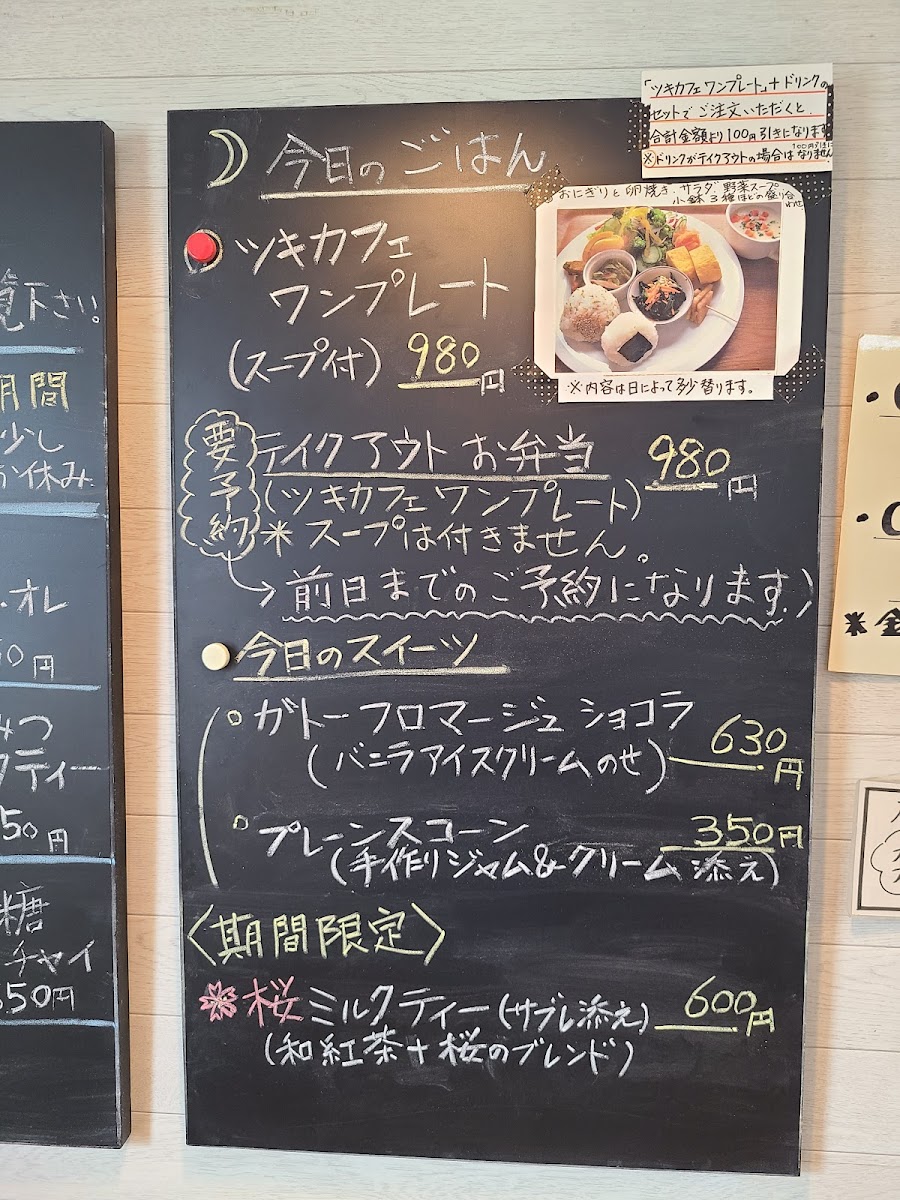 今日のごはん
「ツキカフェワンプレート」+ドリンクの
セットでご注文いただくと
合計金額より100円引きになります
※ドリンクがテイクアウトの場合は100円引きになりません
おにぎりと卵焼き・サラダ・野菜スープ
小鉢3種ほどの盛り合わせ
ツキカフェ
ワンプレート
(スープ付) 980円
※内容は日によって多少替ります。
要予約
テイクアウトお弁当 980円
(ツキカフェワンプレート)
＊スープは付きません。
→前日までのご予約になります!)
今日のスイーツ
ガトーフロマージュショコラ
(バニラアイスクリームのせ) 630円
プレーンスコーン 350円
(手作りジャム&クリーム添え)
〈期間限定〉
桜ミルクティー(サブレ添え) 600円
(和紅茶+桜のブレンド)
下さい。
期間
少し
お休み
・オレ
50円
みつ
クティー
50円
糖
チャイ
550円